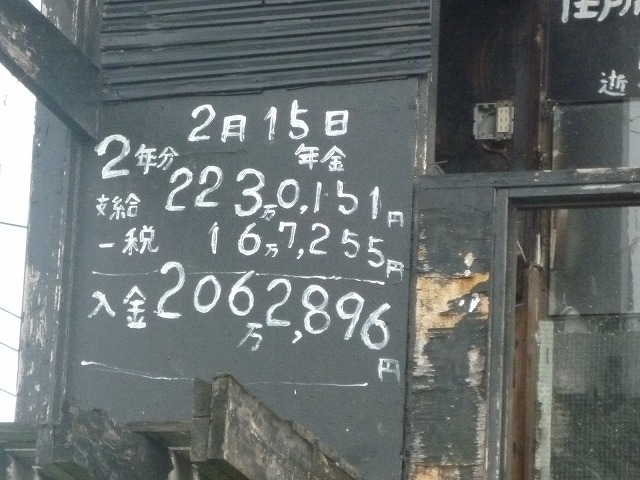 2月15日
2年分 年金
支給 223万0,151円
一税 16万7,255円
入金 206万2,896円
住所
逝